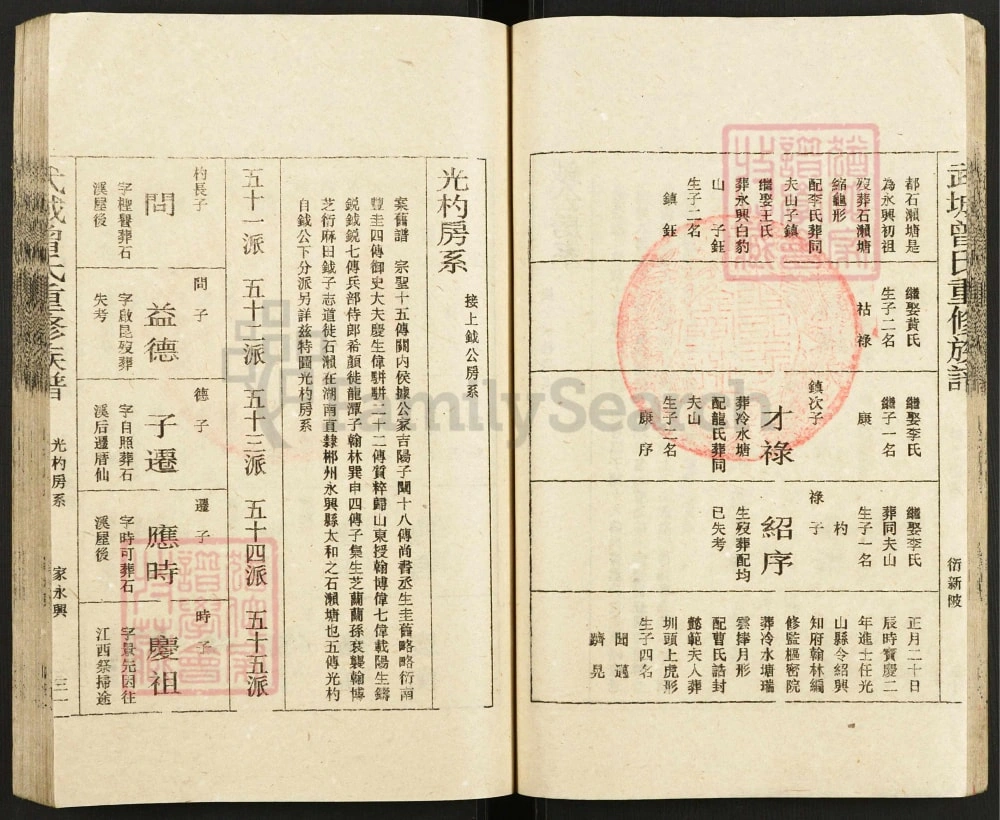 武城曾氏重修族譜
衍新陂
都石瀨塘是
為永興初祖
歿葬石瀨塘
縮龜形
配李氏葬同
夫山子鎮
繼娶王氏
葬永興白豹
山 子鈺
生子二名
鎮 鈺
繼娶黃氏
生子二名
枯 祿
鎮次子
才祿
葬冷水塘
配龍氏葬同
夫山
生子二名
康 序
繼娶李氏
繼子一名
康
祿子
紹序
生歿葬配均
已失考
繼娶李氏
葬同夫山
生子一名
杓
正月二十日
辰時寶慶二
年進士任光
山縣令紹興
知府翰林編
修監樞密院
葬冷水塘瑞
雲捧月形
配曹氏誥封
懿範夫人葬
圳頭上虎形
生子四名
聞 邁
躋 晃
光杓房系 接上鉞公房系
案舊譜 宗聖十五傳關內侯據公家吉陽子闡十八傳尚書丞生圭舊略略衍南
豐圭四傳御史大夫慶生偉駢駢二十二傳質粹歸山東授翰博偉七偉載陽生鑄
銳鉞銳七傳兵部侍郎希顏徒龍潭子翰林巽申四傳子集生芝蘭蘭孫衮襲翰博
芝衍麻田鉞子志道徒石瀨在湖南直隸郴州永興縣太和之石瀨塘也五傳光杓
自鉞公下分派另詳茲特圖光杓房系
五十一派 五十二派 五十三派 五十四派 五十五派
杓長子
問
字極醫葬石
溪屋後
問子
益德
字啟昆歿葬
失考
德子
子遷
字自照葬石
溪后遷厝仙
遷子
應時
字時可葬石
溪屋後
時子
慶祖
字景先因往
江西祭掃途
武城曾氏重修族譜
光杓房系
家永興